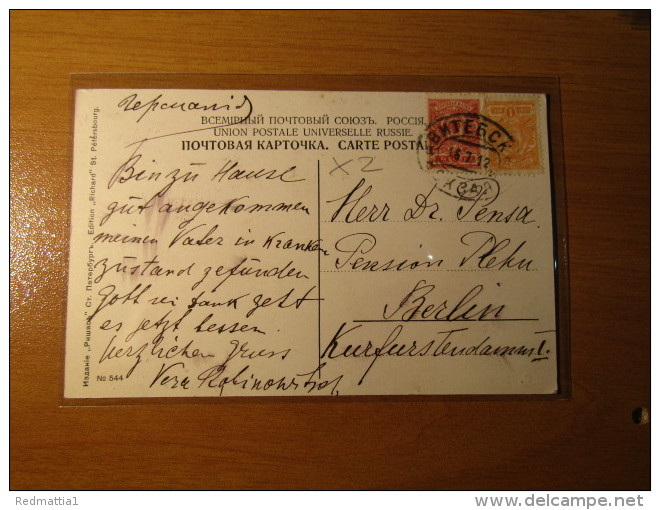 Германія
ВСЕМІРНЫЙ ПОЧТОВЫЙ СОЮЗЪ. РОССІЯ.
UNION POSTALE UNIVERSELLE RUSSIE.
ПОЧТОВАЯ КАРТОЧКА. CARTE POSTALE
X2
ВИТЕБСК
Bin zu Hause
gut angekommen
meinen Vater in Kranken
zustand gefunden
Gott sei dank geht
es jetzt besser.
herzlichen Gruss
Vera
Herr Dr. Pensa
Pension Plehn
Berlin
Kurfürstendamm
Изданіе „Ришаръ" Ст. Петербургъ. Edition „Richard" St. Pétersbourg.
No 544
Redmattia1
delcampe.net